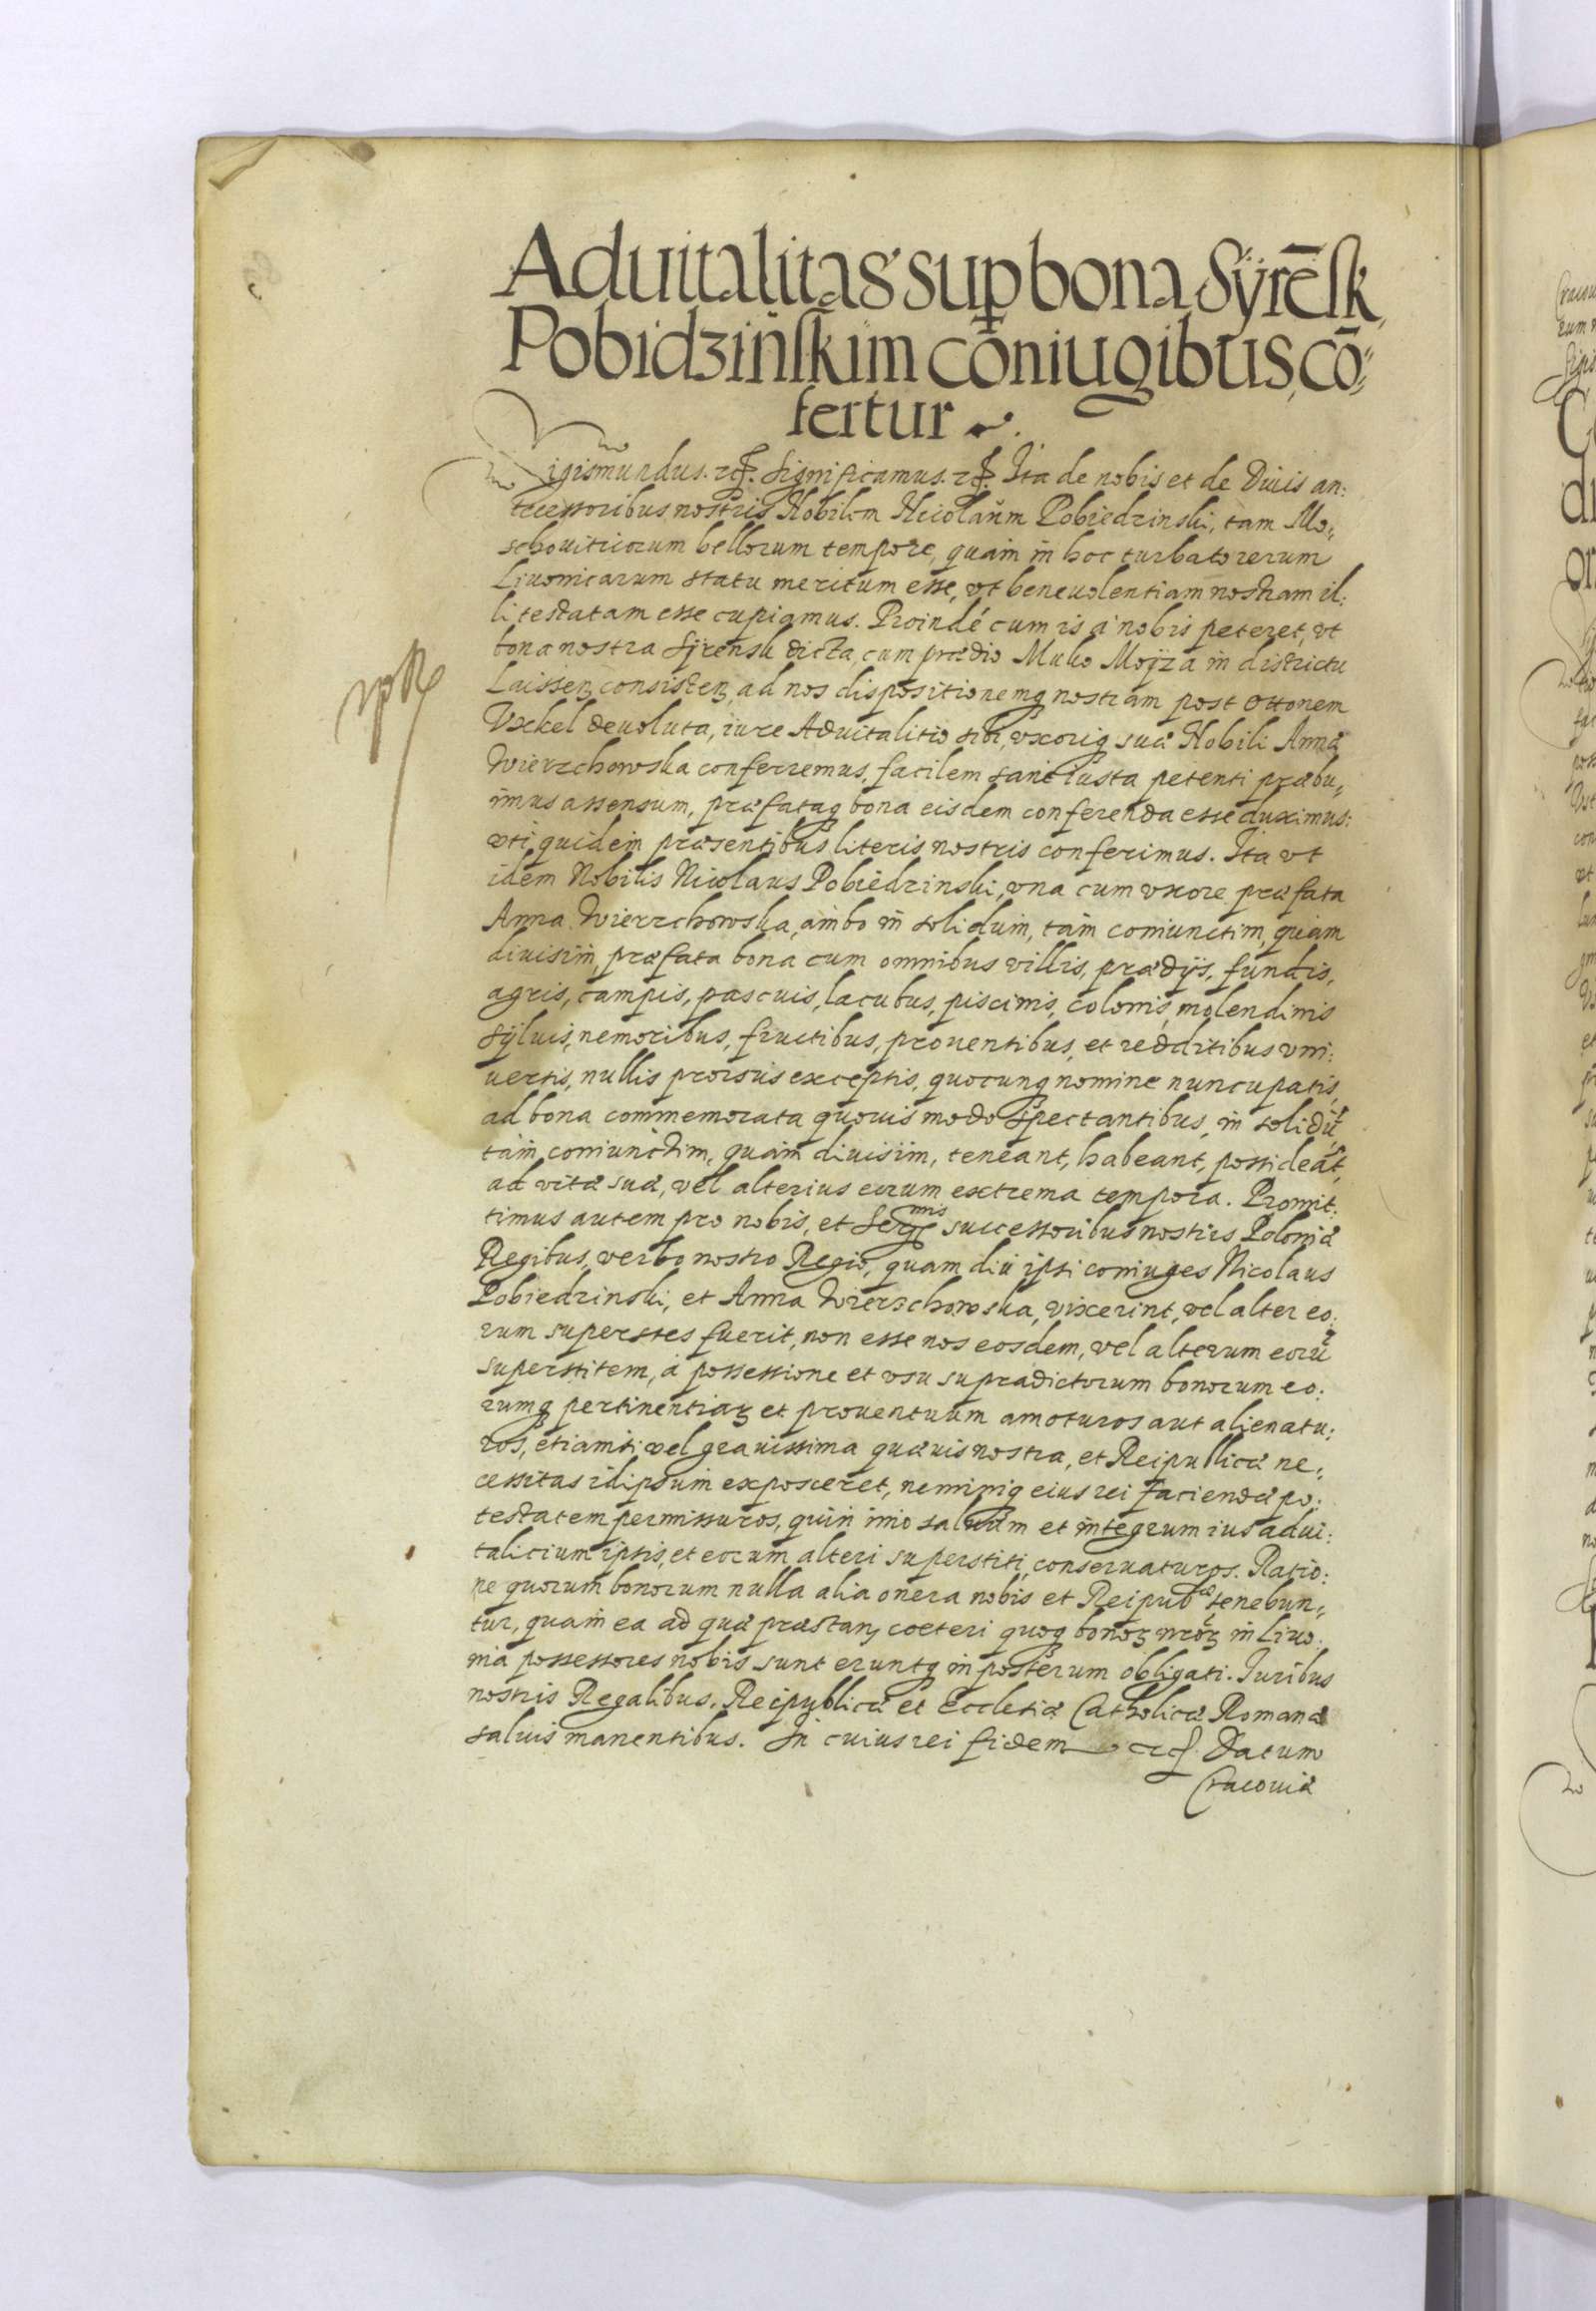 Aduitalitas sup bona Sÿrēsk,
Pobidzińskim cōniugibus, cō„
fertur
Sigismundus. etc. Significamus. etc. Ita de nobis et de Diuis an:
tecessoribus nostris Nobilem Nicolaum Pobiedzinski, tam Mo„
schouiticorum bellorum tempore, quam in hoc turbato rerum
Liuonicarum statu meritum esse, vt beneuolentiam nostram il:
li testatam esse cupiamus. Proindé cum is á nobis peteret, vt
bona nostra Sÿrensk dicta, cum prædio Muko Moÿza in districtu
Laissenꝫ consistenꝫ, ad nos dispositionemqꝫ nostram post Ottonem
Vxkel deuoluta, iure Aduitalitio sibi, vxoriqꝫ suæ Nobili Annæ
Wierzchowska conferremus, facilem sanè iusta petenti præbu„
imus assensum, præfataqꝫ bona eisdem conferenda esse duximus:
vti quidem præsentibus literis nostris conferimus. Ita vt
idem Nobilis Nicolaus Pobiedzinski, vna cum vxore præfata
Anna Wierzchowska, ambo in solidum, tam coniunctim, quam
diuisim, præfata bona cum omnibus villis, prædijs, fundis,
agris, campis, pascuis, lacubus, piscinis, colonis, molendinis
sÿluis, nemoribus, fructibus, prouentibus, et redditibus vni:
uersis, nullis prorsus exceptis, quocunqꝫ nomine nuncupatis,
ad bona commemorata quouis modo spectantibus, in solidū,
tam coniunctim, quam diuisim, teneant, habeant, possideāt,
ad vitæ suæ, vel alterius eorum extrema tempora. Promit:
timus autem pro nobis, et Serᵐⁱˢ successoribus nostris Poloniæ
Regibus, verbo nostro Regio, quam diu ipsi coniuges Nicolaus
Pobiedzinski, et Anna Wierzchowska, vixerint, vel alter eo:
rum superstes fuerit, non esse nos eosdem, vel alterum eorū
superstitem, á possessione et vsu supradictorum bonorum eo:
rumqꝫ pertinentiaꝝ et prouentuum amoturos aut alienatu:
ros, etiamsi vel grauissima quæuis nostra, et Reipublicæ ne„
cessitas idipsum exposceret, neminiqꝫ eius rei faciendæ po:
testatem permissuros, quin imo saluum et integrum ius adui:
talicium ipsis, et eorum alteri superstiti, conseruaturos. Ratio:
ne quorum bonorum nulla alia onera nobis et Reipubᶜᵃᵉ tenebun„
tur, quam ea ad quæ præstanꝫ cœteri quoqꝫ bonoꝝ nroꝝ in Liuo„
nia possessores nobis sunt eruntqꝫ in posterum obligati. Iuribus
nostris Regalibus, Reipublicæ et Ecclesiæ Catholicæ Romanæ
saluis manentibus. In cuius rei fidem etc. Datum
Cracouiæ